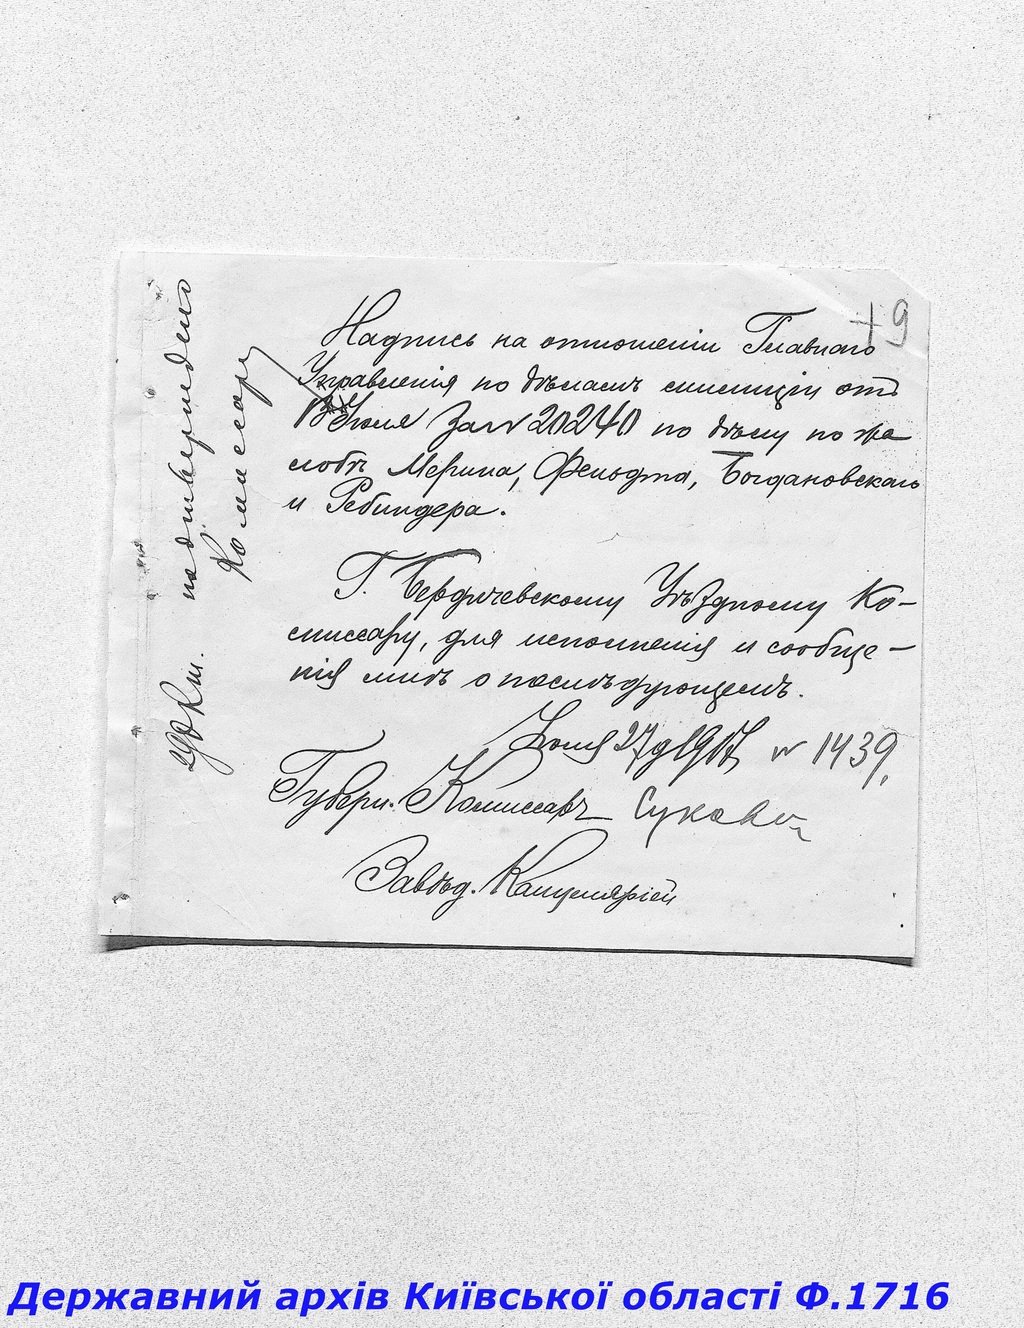 + 9
Надпись на отношеніи Главнаго
Управленія по дѣламъ милиціи отъ
13 Іюля за № 20240 по дѣлу по жа
лобѣ Мерина, Фельдта, Богдановскаго
и Ребиндера.
Г. Бердичевскому Уѣздному Ко-
миссару, для исполненія и сообще-
нія мнѣ о послѣдующемъ.
Іюля 27 д 1917 № 1439.
Губерн. Комиссаръ
Завѣд. Канцеляріей
подтверждено
Комиссару
Державний архів Київської області Ф.1716